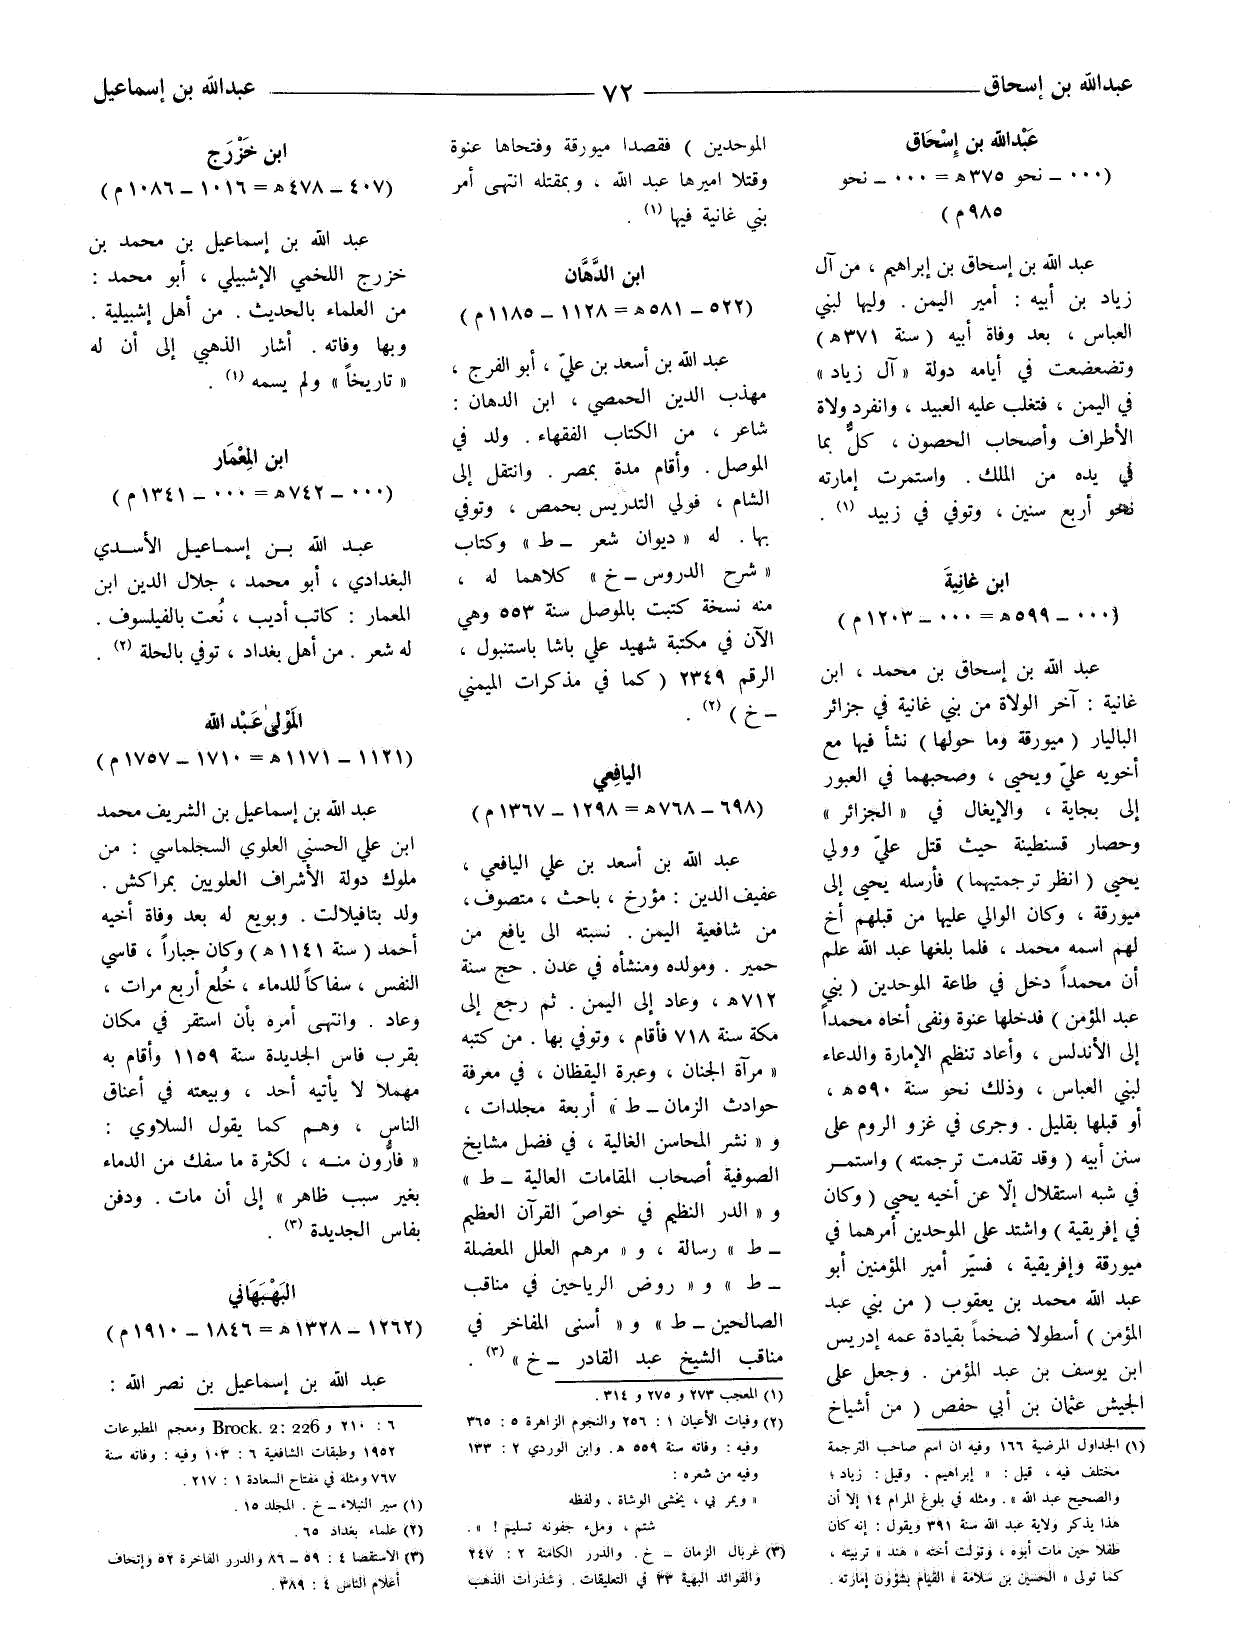 عبدالله بن إسحاق ٧٢ عبدالله بن إسماعيل
عَبْدالله بن إِسْحَاق
(٠٠٠ ـ نحو ٣٧٥هـ = ٠٠٠ ـ نحو
٩٨٥م)
عبد الله بن إسحاق بن إبراهيم ، من آل
زياد بن أبيه : أمير اليمن . وليها لبني
العباس ، بعد وفاة أبيه ( سنة ٣٧١هـ )
وتضعضعت في أيامه دولة « آل زياد »
في اليمن ، فتغلب عليه العبيد ، وانفرد ولاة
الأطراف وأصحاب الحصون ، كلٌّ بما
في يده من الملك . واستمرت إمارته
نحو أربع سنين ، وتوفي في زبيد (١) .
ابن غانِيَة
(٠٠٠ ـ ٥٩٩هـ = ٠٠٠ ـ ١٢٠٣م)
عبد الله بن إسحاق بن محمد ، ابن
غانية : آخر الولاة من بني غانية في جزائر
الباليار ( ميورقة وما حولها ) نشأ فيها مع
أخويه عليّ ويحيى ، وصحبهما في العبور
إلى بجاية ، والإيغال في « الجزائر »
وحصار قسنطينة حيث قتل عليّ وولي
يحيى ( انظر ترجمتيهما ) فأرسله يحيى إلى
ميورقة ، وكان الوالي عليها من قبلهم أخ
لهم اسمه محمد ، فلما بلغها عبد الله علم
أن محمداً دخل في طاعة الموحدين ( بني
عبد المؤمن ) فدخلها عنوة ونفى أخاه محمداً
إلى الأندلس ، وأعاد تنظيم الإمارة والدعاء
لبني العباس ، وذلك نحو سنة ٥٩٠هـ ،
أو قبلها بقليل . وجرى في غزو الروم على
سنن أبيه ( وقد تقدمت ترجمته ) واستمر
في شبه استقلال إلّا عن أخيه يحيى ( وكان
في إفريقية ) واشتد على الموحدين أمرهما في
ميورقة وإفريقية ، فسيّر أمير المؤمنين أبو
عبد الله محمد بن يعقوب ( من بني عبد
المؤمن ) أسطولا ضخماً بقيادة عمه إدريس
ابن يوسف بن عبد المؤمن . وجعل على
الجيش عثمان بن أبي حفص ( من أشياخ
(١) الجداول المرضية ١٦٦ وفيه ان اسم صاحب الترجمة
مختلف فيه ، قيل : « إبراهيم ، وقيل : زياد ؛
والصحيح عبد الله » . ومثله في بلوغ المرام ١٤ إلا أن
هذا يذكر ولاية عبد الله سنة ٣٩١ ويقول : إنه كان
طفلا حين مات أبوه ، وتولت أخته « هند » تربيته ،
كما تولى « الحسين بن سلامة » القيام بشؤون إمارته .
الموحدين ) فقصدا ميورقة وفتحاها عنوة
وقتلا اميرها عبد الله ، وبمقتله انتهى أمر
بني غانية فيها (١) .
ابن الدَّهَّان
(٥٢٢ ـ ٥٨١هـ = ١١٢٨ ـ ١١٨٥م)
عبد الله بن أسعد بن عليّ ، أبو الفرج ،
مهذب الدين الحمصي ، ابن الدهان :
شاعر ، من الكتاب الفقهاء . ولد في
الموصل . وأقام مدة بمصر . وانتقل إلى
الشام ، فولي التدريس بحمص ، وتوفي
بها . له « ديوان شعر ـ ط » وكتاب
« شرح الدروس ـ خ » كلاهما له ،
منه نسخة كتبت بالموصل سنة ٥٥٣ وهي
الآن في مكتبة شهيد علي باشا باستنبول ،
الرقم ٢٣٤٩ ( كما في مذكرات الميمني
ـ خ ) (٢) .
اليافِعي
(٦٩٨ ـ ٧٦٨هـ = ١٢٩٨ ـ ١٣٦٧م)
عبد الله بن أسعد بن علي اليافعي ،
عفيف الدين : مؤرخ ، باحث ، متصوف ،
من شافعية اليمن . نسبته الى يافع من
حمير . ومولده ومنشأه في عدن . حج سنة
٧١٢هـ ، وعاد إلى اليمن . ثم رجع إلى
مكة سنة ٧١٨ فأقام ، وتوفي بها . من كتبه
« مرآة الجنان ، وعبرة اليقظان ، في معرفة
حوادث الزمان ـ ط » أربعة مجلدات ،
و « نشر المحاسن الغالية ، في فضل مشايخ
الصوفية أصحاب المقامات العالية ـ ط »
و « الدر النظيم في خواصّ القرآن العظيم
ـ ط » رسالة ، و « مرهم العلل المعضلة
ـ ط » و « روض الرياحين في مناقب
الصالحين ـ ط » و « أسنى المفاخر في
مناقب الشيخ عبد القادر ـ خ » (٣) .
(١) المعجب ٢٧٣ و ٢٧٥ و ٣١٤ .
(٢) وفيات الأعيان ١ : ٢٥٦ والنجوم الزاهرة ٥ : ٣٦٥
وفيه : وفاته سنة ٥٥٩ هـ . وابن الوردي ٢ : ١٣٣
وفيه من شعره :
« ويمر بي ، يخشى الوشاة ، ولفظه
شتم ، وملء جفونه تسليم ! » .
(٣) غربال الزمان ـ خ . والدرر الكامنة ٢ : ٢٤٧
والفوائد البهية ٣٣ في التعليقات . وشذرات الذهب
ابن خَزْرَج
(٤٠٧ ـ ٤٧٨هـ = ١٠١٦ ـ ١٠٨٦م)
عبد الله بن إسماعيل بن محمد بن
خزرج اللخمي الإشبيلي ، أبو محمد :
من العلماء بالحديث . من أهل إشبيلية .
وبها وفاته . أشار الذهبي إلى أن له
« تاريخاً » ولم يسمه (١) .
ابن المِعْمَار
(٠٠٠ ـ ٧٤٢هـ = ٠٠٠ ـ ١٣٤١م)
عبد الله بن إسماعيل الأسدي
البغدادي ، أبو محمد ، جلال الدين ابن
المعمار : كاتب أديب ، نُعت بالفيلسوف .
له شعر . من أهل بغداد ، توفي بالحلة (٢) .
المَوْلىٰ عَبْد الله
(١١٢١ ـ ١١٧١هـ = ١٧١٠ ـ ١٧٥٧م)
عبد الله بن إسماعيل بن الشريف محمد
ابن علي الحسني العلوي السجلماسي : من
ملوك دولة الأشراف العلويين بمراكش .
ولد بتافيلالت . وبويع له بعد وفاة أخيه
أحمد ( سنة ١١٤١ هـ ) وكان جباراً ، قاسي
النفس ، سفاكاً للدماء ، خُلع أربع مرات ،
وعاد . وانتهى أمره بأن استقر في مكان
بقرب فاس الجديدة سنة ١١٥٩ وأقام به
مهملا لا يأتيه أحد ، وبيعته في أعناق
الناس ، وهم كما يقول السلاوي :
« فارُّون منه ، لكثرة ما سفك من الدماء
بغير سبب ظاهر » إلى أن مات . ودفن
بفاس الجديدة (٣) .
البَهْبَهَاني
(١٢٦٢ ـ ١٣٢٨هـ = ١٨٤٦ ـ ١٩١٠م)
عبد الله بن إسماعيل بن نصر الله :
٦ : ٢١٠ و Brock. 2: 226 ومعجم المطبوعات
١٩٥٢ وطبقات الشافعية ٦ : ١٠٣ وفيه : وفاته سنة
٧٦٧ ومثله في مفتاح السعادة ١ : ٢١٧ .
(١) سير النبلاء ـ خ . المجلد ١٥ .
(٢) علماء بغداد ٦٥ .
(٣) الاستقصا ٤ : ٥٩ ـ ٨٦ والدرر الفاخرة ٥٢ وإتحاف
أعلام الناس ٤ : ٣٨٩ .